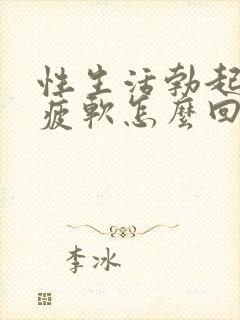 性生活勃起
疲軟怎麼回
李冰